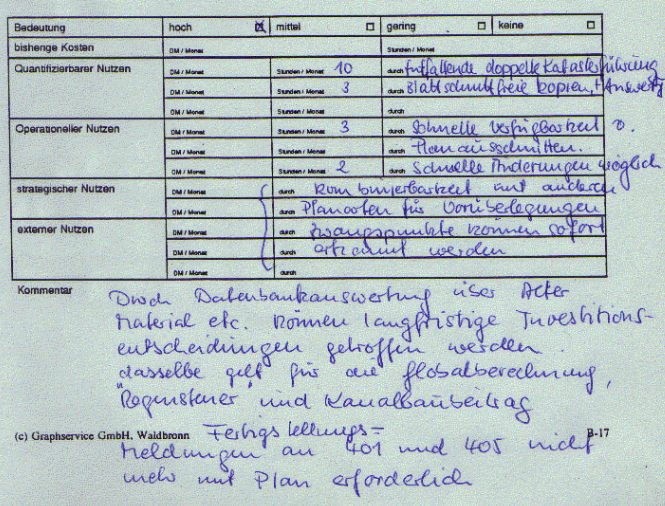 Bedeutung hoch ☒ mittel ☐ gering ☐ keine ☐
bisherige Kosten DM / Monat Stunden / Monat
Quantifizierbarer Nutzen DM / Monat Stunden / Monat 10 durch Entfallende doppelte Katasterführung
DM / Monat Stunden / Monat 3 durch Blattschnittfreie Kopien,
DM / Monat durch
Operationeller Nutzen DM / Monat Stunden / Monat 3 durch Schnelle Verfügbarkeit v.
DM / Monat Stunden / Monat durch Planausschnitten.
DM / Monat Stunden / Monat 2 durch Schnelle Änderungen möglich
strategischer Nutzen DM / Monat durch Kombinierbarkeit mit anderen
DM / Monat durch Plandaten für Vorüberlegungen
externer Nutzen DM / Monat durch Zwangspunkte können sofort
DM / Monat durch erkannt werden
DM / Monat durch
Kommentar Durch Datenbankauswertung über Alter
Material etc. können langfristige Investitions-
entscheidungen getroffen werden.
dasselbe gilt für die Globalberechnung,
"Regensteuer" und Kanalbaubeitrag
(c) Graphservice GmbH, Waldbronn Fertigstellungs= B-17
Meldungen an 401 und 405 nicht
mehr mit Plan erforderlich